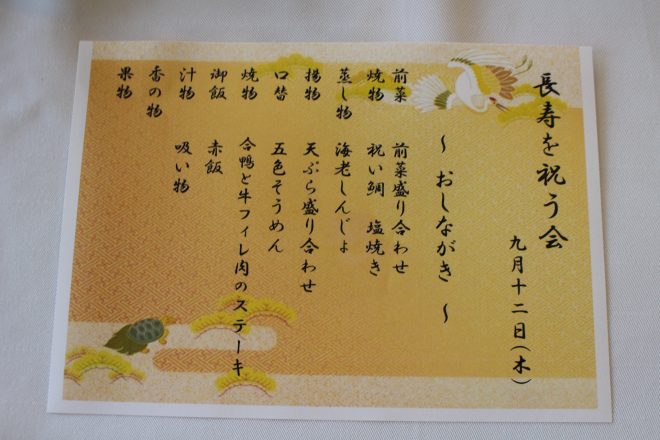 長寿を祝う会
九月十二日（木）
～ おしながき ～
前菜 前菜盛り合わせ
焼物 祝い鯛 塩焼き
蒸し物 海老しんじょ
揚物 天ぷら盛り合わせ
口替 五色そうめん
焼物 合鴨と牛フィレ肉のステーキ
御飯 赤飯
汁物 吸い物
香の物
果物